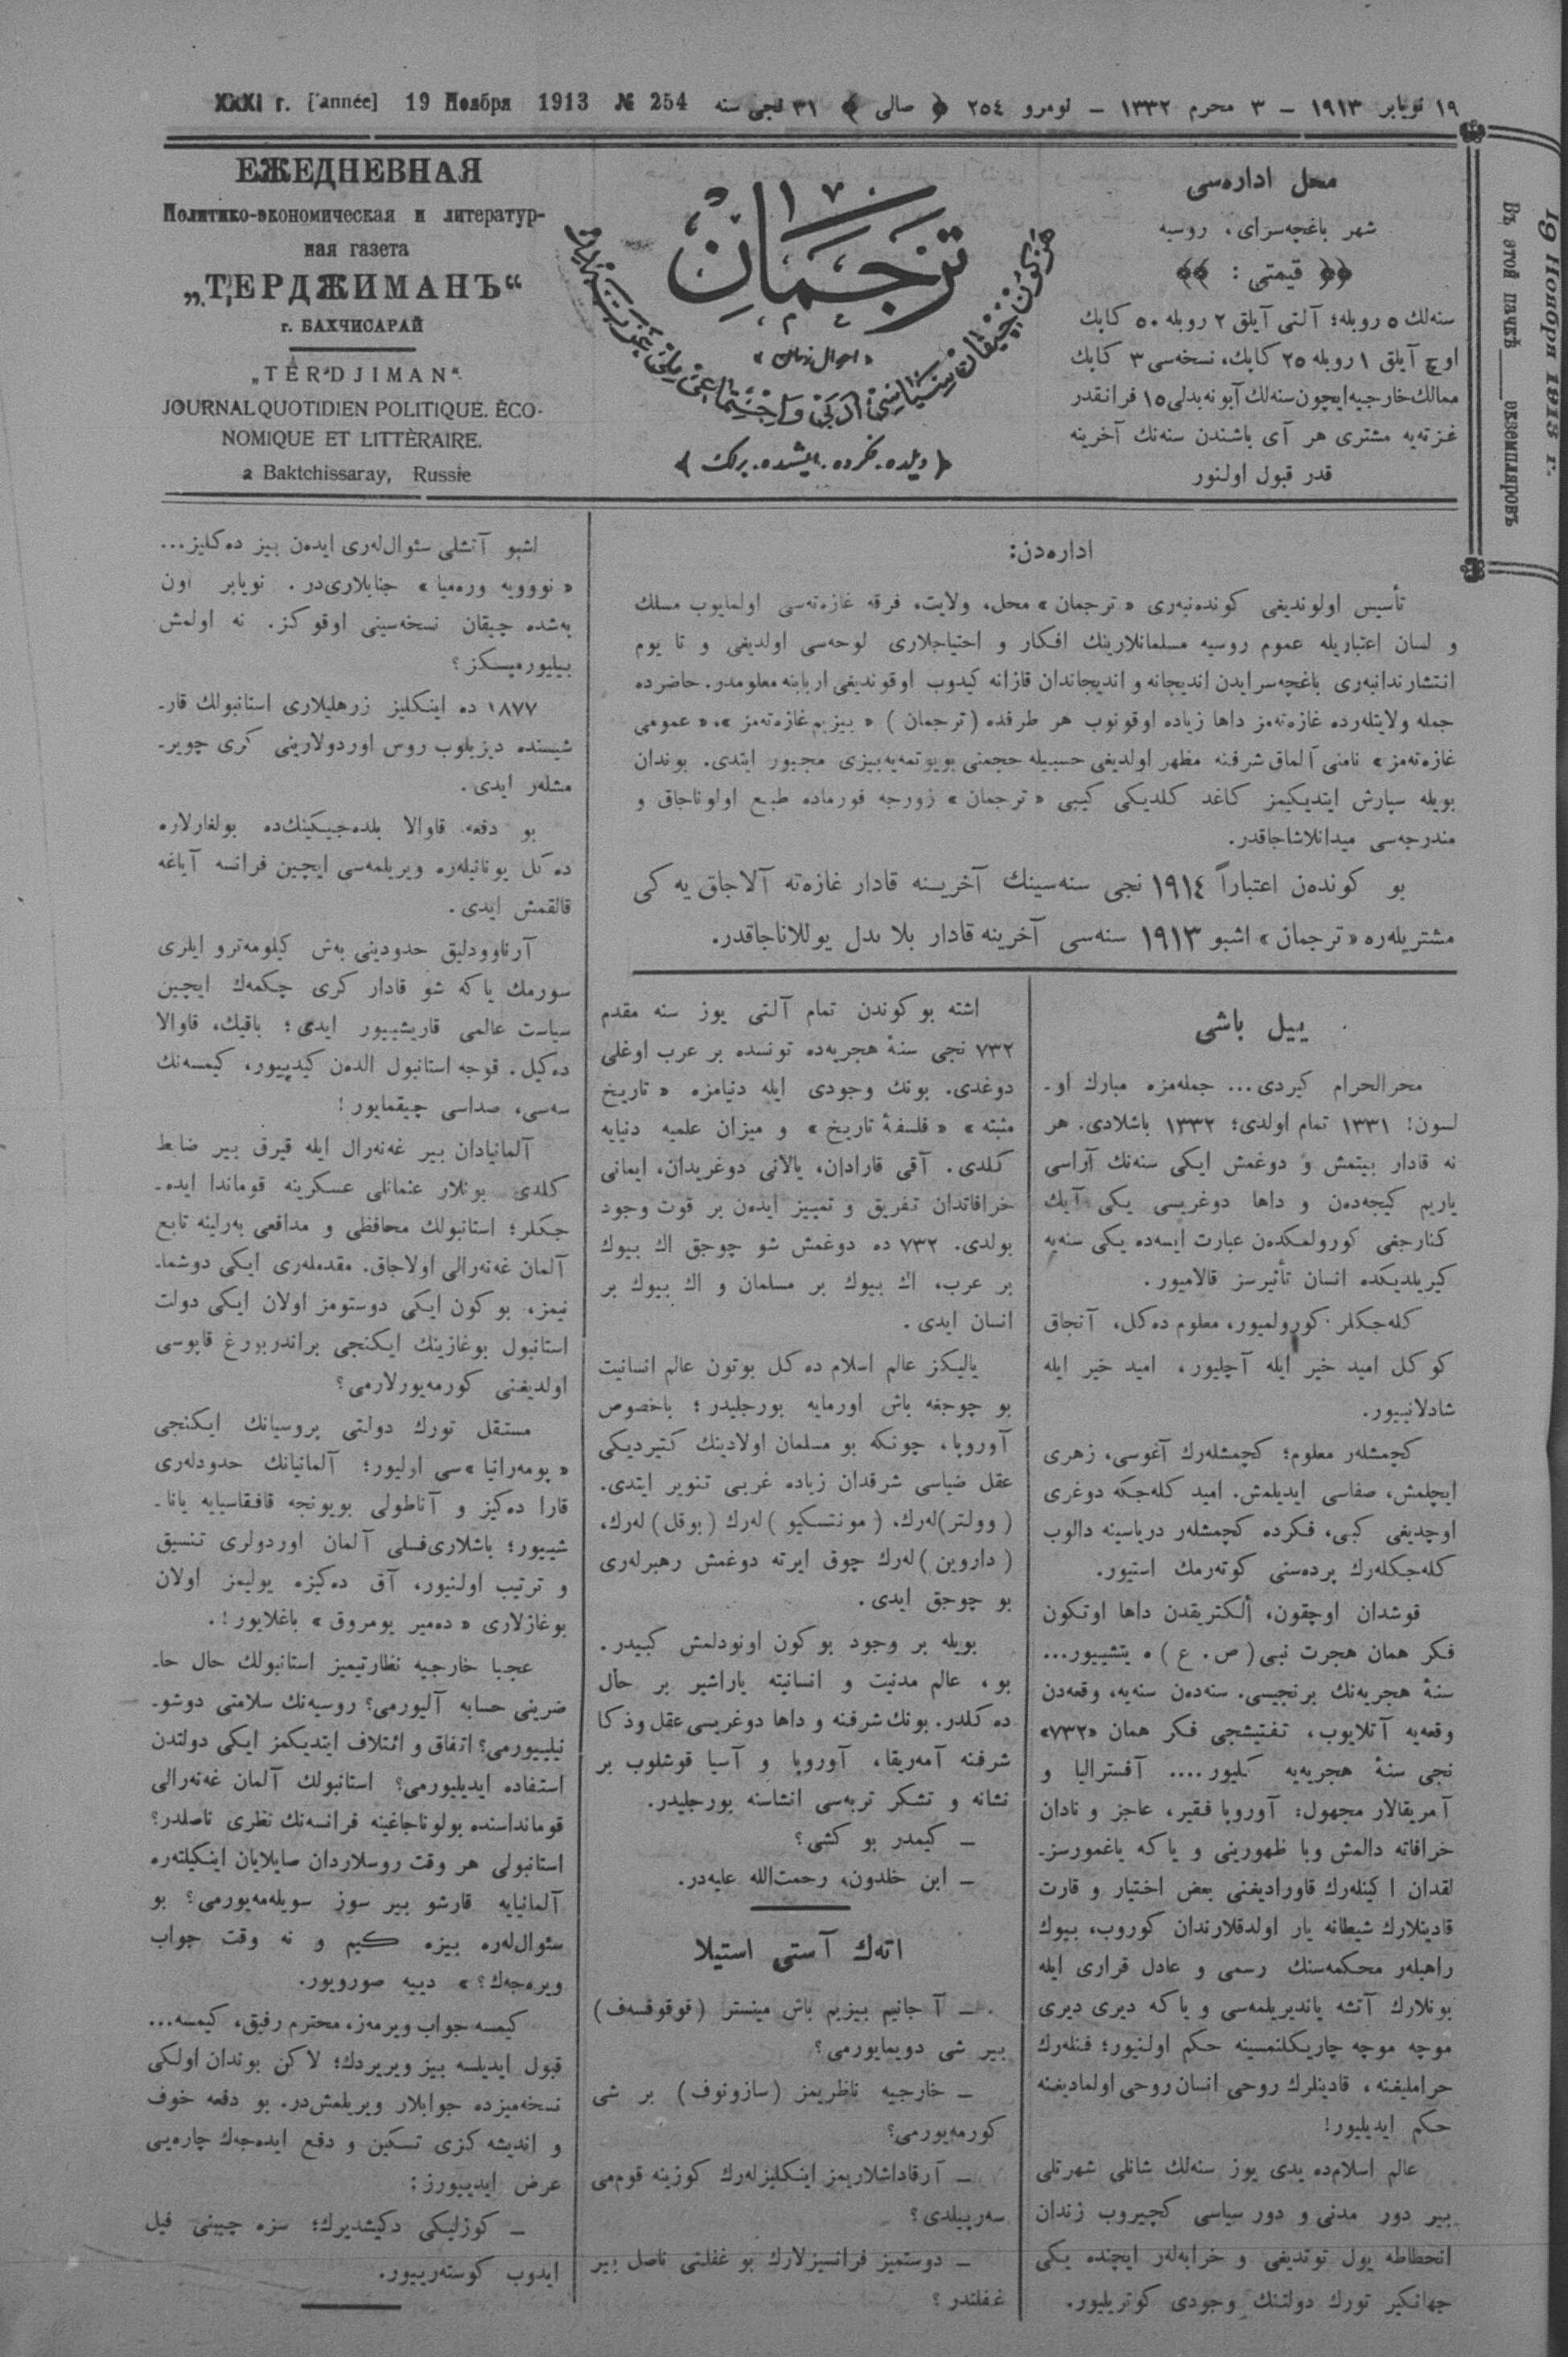 XXXI г. [année] 19 Ноября 1913 № 254
١٩ نویابر ١٩١٣ – ٣ محرم ١٣٣٢ – نومرو ٢٥٤ ﴿ صالی ﴾ ٣١ نجی سنه
ЕЖЕДНЕВНАЯ
Политико-экономическая и литератур-
ная газета
„ТЕРДЖИМАНЪ“
г. БАХЧИСАРАЙ
„TERDJIMAN“
JOURNAL QUOTIDIEN POLITIQUE. ÈCO-
NOMIQUE ET LITTÈRAIRE.
a Baktchissaray, Russie
ترجمان
« احوال زمان »
هر کون چیقان سیاسی، ادبی و اجتماعی ملی غزته‌در
﴿ دیلده، فکرده، ایشده، برلك ﴾
محل اداره‌سی
شهر باغچه‌سرای، روسیه
﴿﴿ قیمتی : ﴾﴾
سنه‌لك ٥ روبله؛ آلتی آیلق ٢ روبله ٥٠ کاپك
اوچ آیلق ١ روبله ٢٥ کاپك، نسخه‌سی ٣ کاپك
ممالك خارجیه ایچون سنه‌لك آبونه بدلی ١٥ فرانقدر
غزته‌یه مشتری هر آی باشندن سنه‌نك آخرینه
قدر قبول اولنور
19 Ноября 1913 г.
Въ этой пачкѣ ____ экземпляровъ
اداره‌دن:
تأسیس اولوندیغی کونده‌نبه‌ری « ترجمان » محل، ولایت، فرقه غازه‌ته‌سی اولمایوب مسلك
و لسان اعتباریله عموم روسیه مسلمانلارینك افکار و احتیاجلاری لوحه‌سی اولدیغی و تا یوم
انتشارندانبه‌ری باغچه‌سرایدن اندیجانه و اندیجاندان قازانه کیدوب اوقوندیغی اربابنه معلومدر. حاضرده
جمله ولایتلرده غازه‌ته‌مز داها زیاده اوقونوب هر طرفده (ترجمان) « بیزیم غازه‌ته‌مز »، « عمومی
غازه‌ته‌مز » نامنی آلماق شرفنه مظهر اولدیغی حسبیله حجمنی بویوتمه‌یه بیزی مجبور ایتدی. بوندان
بویله سپارش ایتدیکیمز کاغد کلدیکی کیبی « ترجمان » زورجه فورماده طبع اولوناجاق و
مندرجه‌سی میدانلاشاجاقدر.
بو کونده‌ن اعتباراً ١٩١٤ نجی سنه‌سینك آخرینه قادار غازه‌ته آلاجاق یه کی
مشتریله‌ره « ترجمان » اشبو ١٩١٣ سنه‌سی آخرینه قادار بلا بدل یوللاناجاقدر.
ییل باشی
محرالحرام کیردی... جمله‌مزه مبارك او-
لسون! ١٣٣١ تمام اولدی؛ ١٣٣٢ باشلادی. هر
نه قادار بیتمش و دوغمش ایکی سنه‌نك آراسی
یاریم کیجه‌ده‌ن و داها دوغریسی یکی آیك
کنارجغی کورولمکده‌ن عبارت ایسه‌ده یکی سنه‌یه
کیریلدیکده انسان تأثیرسز قالامیور.
کله‌جکلر کورولمیور، معلوم ده‌کل، آنجاق
کوکل امید خیر ایله آچلیور، امید خیر ایله
شادلانییور.
کچمشله‌ر معلوم؛ کچمشله‌رك آغوسی، زهری
ایچلمش، صفاسی ایدیلمش. امید کله‌جکه دوغری
اوچدیغی کبی، فکرده کچمشله‌ر دریاسینه دالوب
کله‌جکله‌رك پرده‌سنی کوته‌رمك استیور.
قوشدان اوچقون، ألکتریقدن داها اوتکون
فکر همان هجرت نبی (ص. ع) ه یتشییور...
سنۀ هجریه‌نك برنجیسی. سنه‌ده‌ن سنه‌یه، وقعه‌دن
وقعه‌یه آتلایوب، تفتیشجی فکر همان «٧٣٢»
نجی سنۀ هجریه‌یه کلیور.... آفسترالیا و
آمریقالار مجهول: آوروپا فقیر، عاجز و نادان
خرافاته دالمش وبا ظهورینی و یاکه یاغمورسز-
لقدان اکینله‌رك قاورادیغنی بعض اختیار و قارت
قادینلارك شیطانه یار اولدقلارندان کوروب، بیوك
راهبله‌ر محکمه‌سنك رسمی و عادل قراری ایله
بونلارك آتشه یاندیریلمه‌سی و یاکه دیری دیری
موچه موچه چاریکلنمسینه حکم اولنیور؛ فنله‌رك
حراملیغنه، قادینلرك روحی انسان روحی اولمادیغنه
حکم ایدیلیور!
عالم اسلامده یدی یوز سنه‌لك شانلی شهرتلی
بیر دور مدنی و دور سیاسی کچیروب زندان
انحطاطه یول توتدیغی و خرابه‌لر ایچنده یکی
جهانکیر تورك دولتنك وجودی کوتریلیور.
اشته بو کوندن تمام آلتی یوز سنه مقدم
٧٣٢ نجی سنۀ هجریه‌ده تونسده بر عرب اوغلی
دوغدی. بونك وجودی ایله دنیامزه « تاریخ
مثبته » « فلسفۀ تاریخ » و میزان علمیه دنیایه
کلدی. آقی قارادان، یالانی دوغریدان، ایمانی
خرافاتدان تفریق و تمییز ایده‌ن بر قوت وجود
بولدی. ٧٣٢ ده دوغمش شو چوجق اك بیوك
بر عرب، اك بیوك بر مسلمان و اك بیوك بر
انسان ایدی.
یالیکز عالم اسلام ده‌کل بوتون عالم انسانیت
بو چوجغه باش اورمایه بورجلیدر؛ باخصوص
آوروپا، چونکه بو مسلمان اولادینك کتیردیکی
عقل ضیاسی شرقدان زیاده غربی تنویر ایتدی.
(وولتر) له‌رك، (مونتسکیو) له‌رك (بوقل) له‌رك،
(داروین) له‌رك چوق ایرته دوغمش رهبرله‌ری
بو چوجق ایدی.
بویله بر وجود بو کون اونودلمش کبیدر.
بو، عالم مدنیت و انسانیته یاراشیر بر حال
ده‌کلدر. بونك شرفنه و داها دوغریسی عقل و ذکا
شرفنه آمه‌ریقا، آوروپا و آسیا قوشلوب بر
نشانه و تشکر تربه‌سی انشاسنه بورجلیدر.
– کیمدر بو کشی؟
– ابن خلدون، رحمت‌الله علیه‌در.
اتەك آستی استیلا
– آ جانیم بیزیم باش مینستر (قوقوفسه‌ف)
بیر شی دویمایورمی؟
– خارجیه ناظریمز (سازونوف) بر شی
کورمه‌یورمی؟
– آرقاداشلاریمز اینکلیزله‌رك کوزینه قوم‌می
سه‌رپیلدی؟
– دوستمیز فرانسیزلارك بو غفلتی ناصل بیر
غفلتدر؟
اشبو آتشلی سئوال‌له‌ری ایده‌ن بیز ده‌کلیز...
« نوویه وره‌میا » جنابلاری‌در. نویابر اون
به‌شده چیقان نسخه‌سینی اوقوکز. نه اولمش
بیلیورمیسکز؟
١٨٧٧ ده اینکلیز زرهلیلاری استانبولك قار-
شیسنده دیزیلوب روس اوردولارینی کری چویر-
مشله‌ر ایدی.
بو دفعه قاوالا بلده‌جیکینك‌ده بولغارلاره
ده‌کل یونانیله‌ره ویریلمه‌سی ایچین فرانسه آیاغه
قالقمش ایدی.
آرناوودلیق حدودینی به‌ش کیلومه‌ترو ایلری
سورمك یاکه شو قادار کری چکمه‌ك ایچین
سیاست عالمی قاریشییور ایدی؛ باقیك، قاوالا
ده‌کیل. قوجه استانبول الده‌ن کیدییور، کیمسه‌نك
سه‌سی، صداسی چیقمایور!
آلمانیادان بیر غه‌نه‌رال ایله قیرق بیر ضابط
کلدی بونلار عثمانلی عسکرینه قوماندا ایده-
جکلر؛ استانبولك محافظی و مدافعی به‌رلینه تابع
آلمان غه‌نه‌رالی اولاجاق. مقدمله‌ری ایکی دوشما-
نیمز، بو کون ایکی دوستومز اولان ایکی دولت
استانبول بوغازینك ایکنجی براندربورغ قاپوسی
اولدیغنی کورمه‌یورلارمی؟
مستقل تورك دولتی پروسیانك ایکنجی
« پومه‌رانیا »سی اولیور؛ آلمانیانك حدودله‌ری
قارا ده‌کیز و آناطولی بویونجه قافقاسیایه یانا-
شییور؛ باشلاری فسلی آلمان اوردولری تنسیق
و ترتیب اولنیور، آق ده‌کیزه یولیمز اولان
بوغازلاری « ده‌میر یومروق » باغلایور!.
عجبا خارجیه نظارتیمیز استانبولك حال حا-
ضرینی حسابه آلیورمی؟ روسیه‌نك سلامتی دوشو-
نیلییورمی؟ اتفاق و ائتلاف ایتدیکمز ایکی دولتدن
استفاده ایدیلیورمی؟ استانبولك آلمان غه‌نه‌رالی
قومانداسنده بولوناجاغینه فرانسه‌نك نظری ناصلدر؟
استانبولی هر وقت روسلاردان صایلایان اینکیلته‌ره
آلمانیایه قارشو بیر سوز سویله‌مه‌یورمی؟ بو
سئوال‌له‌ره بیزه کیم و نه وقت جواب
ویره‌جه‌ك؟ » دییه صورویور.
کیمسه جواب ویرمه‌ز، محترم رفیق، کیمسه...
قبول ایدیلسه بیز ویریردك؛ لاکن بوندان اولکی
نسخه‌میزده جوابلار ویریلمش‌در. بو دفعه خوف
و اندیشه‌کزی تسکین و دفع ایده‌جه‌ك چاره‌یی
عرض ایدییورز:
– کوزلیکی دکیشدیرك؛ سزه چیبنی فیل
ایدوب کوسته‌رییور.